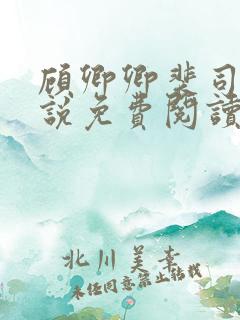 顾卿卿裴司
説免費閱讀
北川美幸
未经同意禁止转载